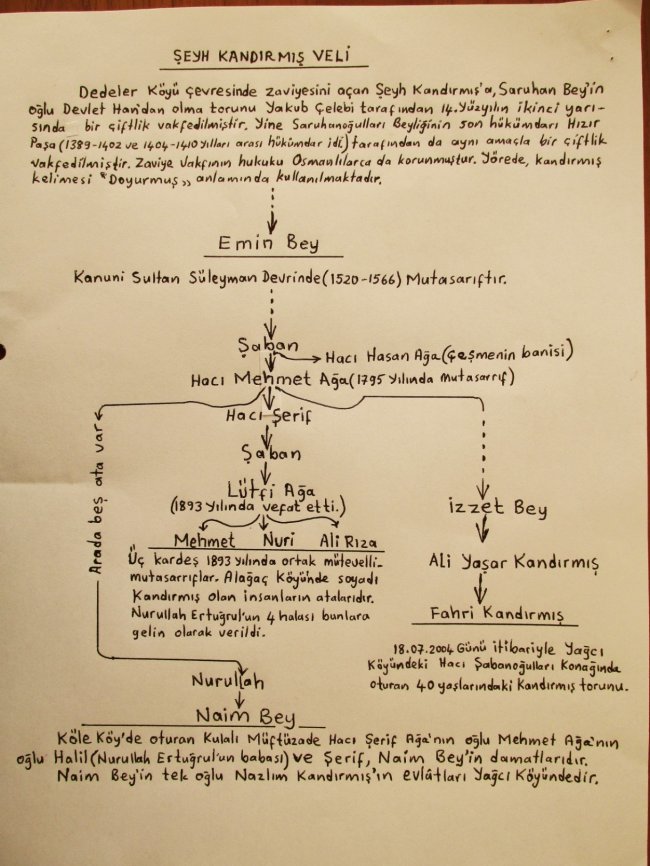 ŞEYH KANDIRMIŞ VELİ
Dedeler Köyü çevresinde zaviyesini açan Şeyh Kandırmış'a, Saruhan Bey'in
oğlu Devlet Han'dan olma torunu Yakub Çelebi tarafından 14. Yüzyılın ikinci yarı-
sında bir çiftlik vakfedilmiştir. Yine Saruhanoğulları Beyliğinin son hükümdarı Hızır
Paşa (1389-1402 ve 1404-1410 yılları arası hükümdar idi) tarafından da aynı amaçla bir çiftlik
vakfedilmiştir. Zaviye Vakfının hukuku Osmanlılarca da korunmuştur. Yörede, kandırmış
kelimesi "Doyurmuş,, anlamında kullanılmaktadır.
Emin Bey
Kanuni Sultan Süleyman Devrinde (1520-1566) Mutasarıftır.
Şaban
Hacı Hasan Ağa (çeşmenin banisi)
Hacı Mehmet Ağa (1795 yılında mutasarrıf)
Hacı Şerif
Şaban
Lütfi Ağa
(1893 yılında vefat etti.)
Mehmet Nuri Ali Rıza
Üç kardeş 1893 yılında ortak mütevelli-
mutasarrıflar. Alağaç Köyünde soyadı
Kandırmış olan insanların atalarıdır.
Nurullah Ertuğrul'un 4 halası bunlara
gelin olarak verildi.
Arada beş ata var
İzzet Bey
Ali Yaşar Kandırmış
Fahri Kandırmış
18.07.2004 Günü itibariyle Yağcı
Köyündeki Hacı Şabanoğulları Konağında
oturan 40 yaşlarındaki Kandırmış torunu.
Nurullah
Naim Bey
Köle Köy'de oturan Kulalı Müftüzade Hacı Şerif Ağa'nın oğlu Mehmet Ağa'nın
oğlu Halil (Nurullah Ertuğrul'un babası) ve Şerif, Naim Bey'in damatlarıdır.
Naim Bey'in tek oğlu Nazlım Kandırmış'ın evlâtları Yağcı Köyündedir.